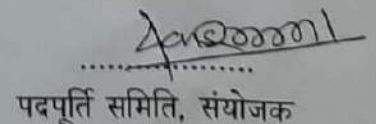 ....................
पदपूर्ति समिति, संयोजक